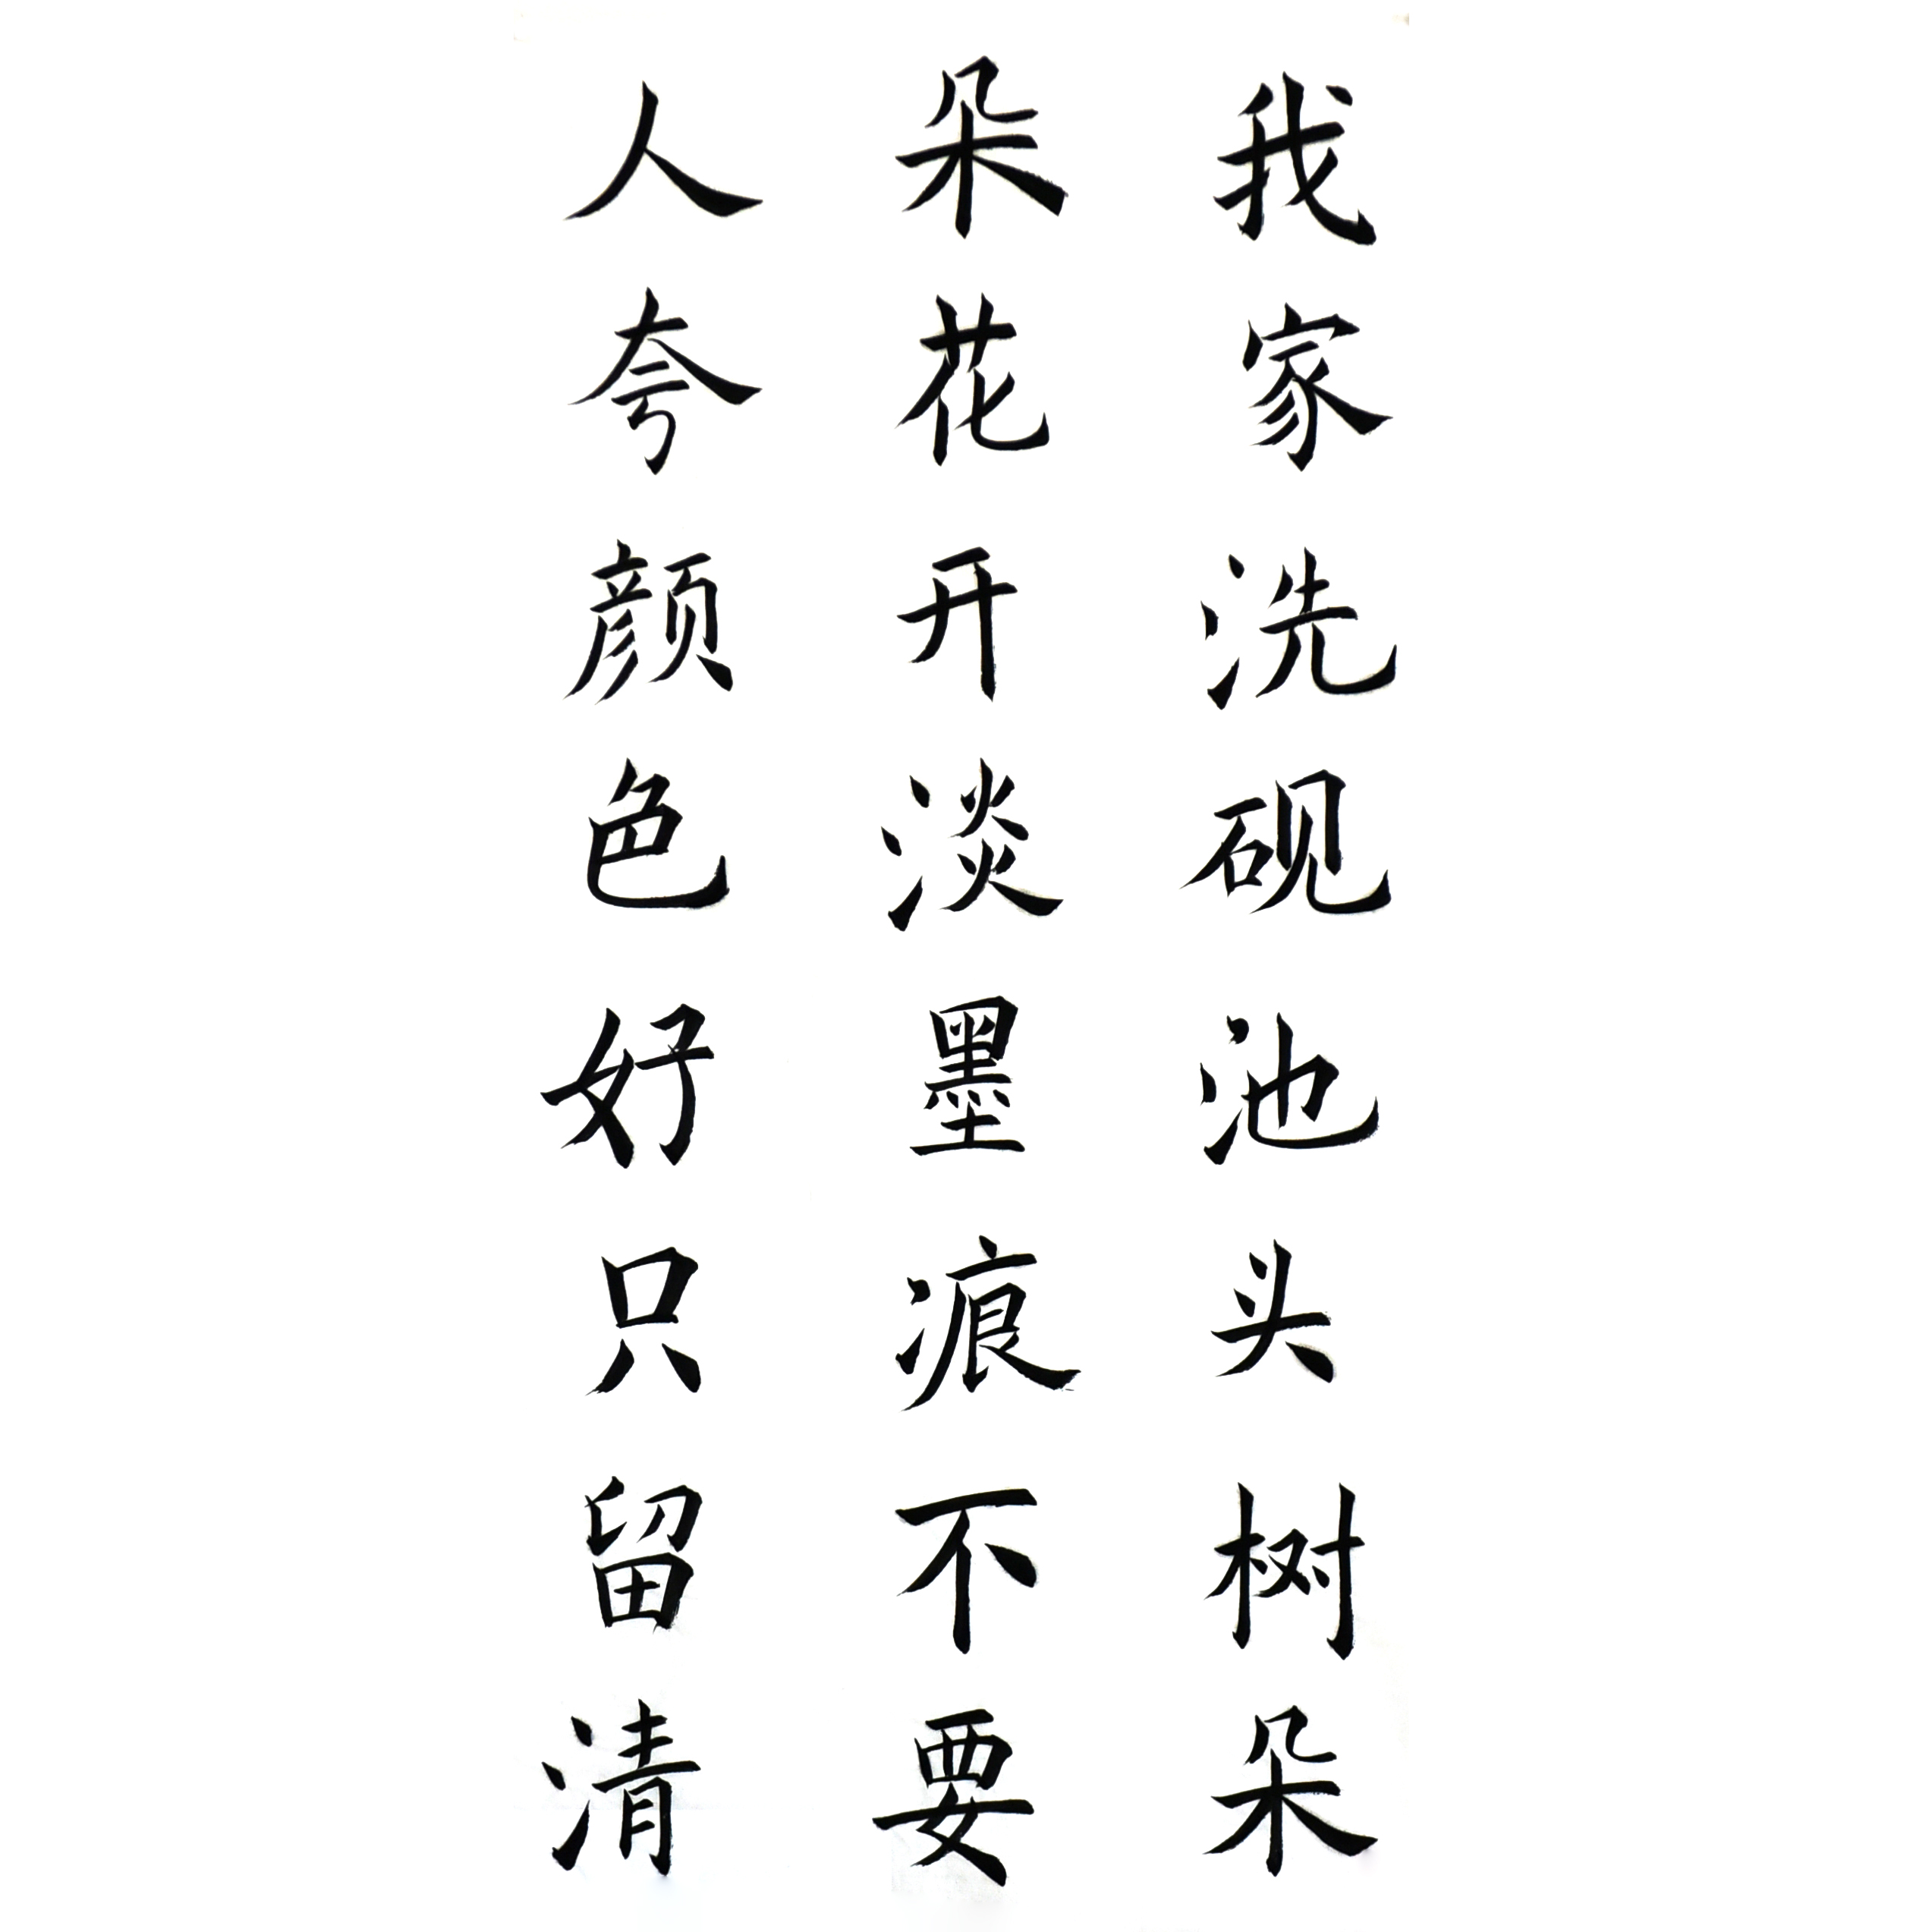 我家洗砚池头树朵
朵花开淡墨痕不要
人夸颜色好只留清